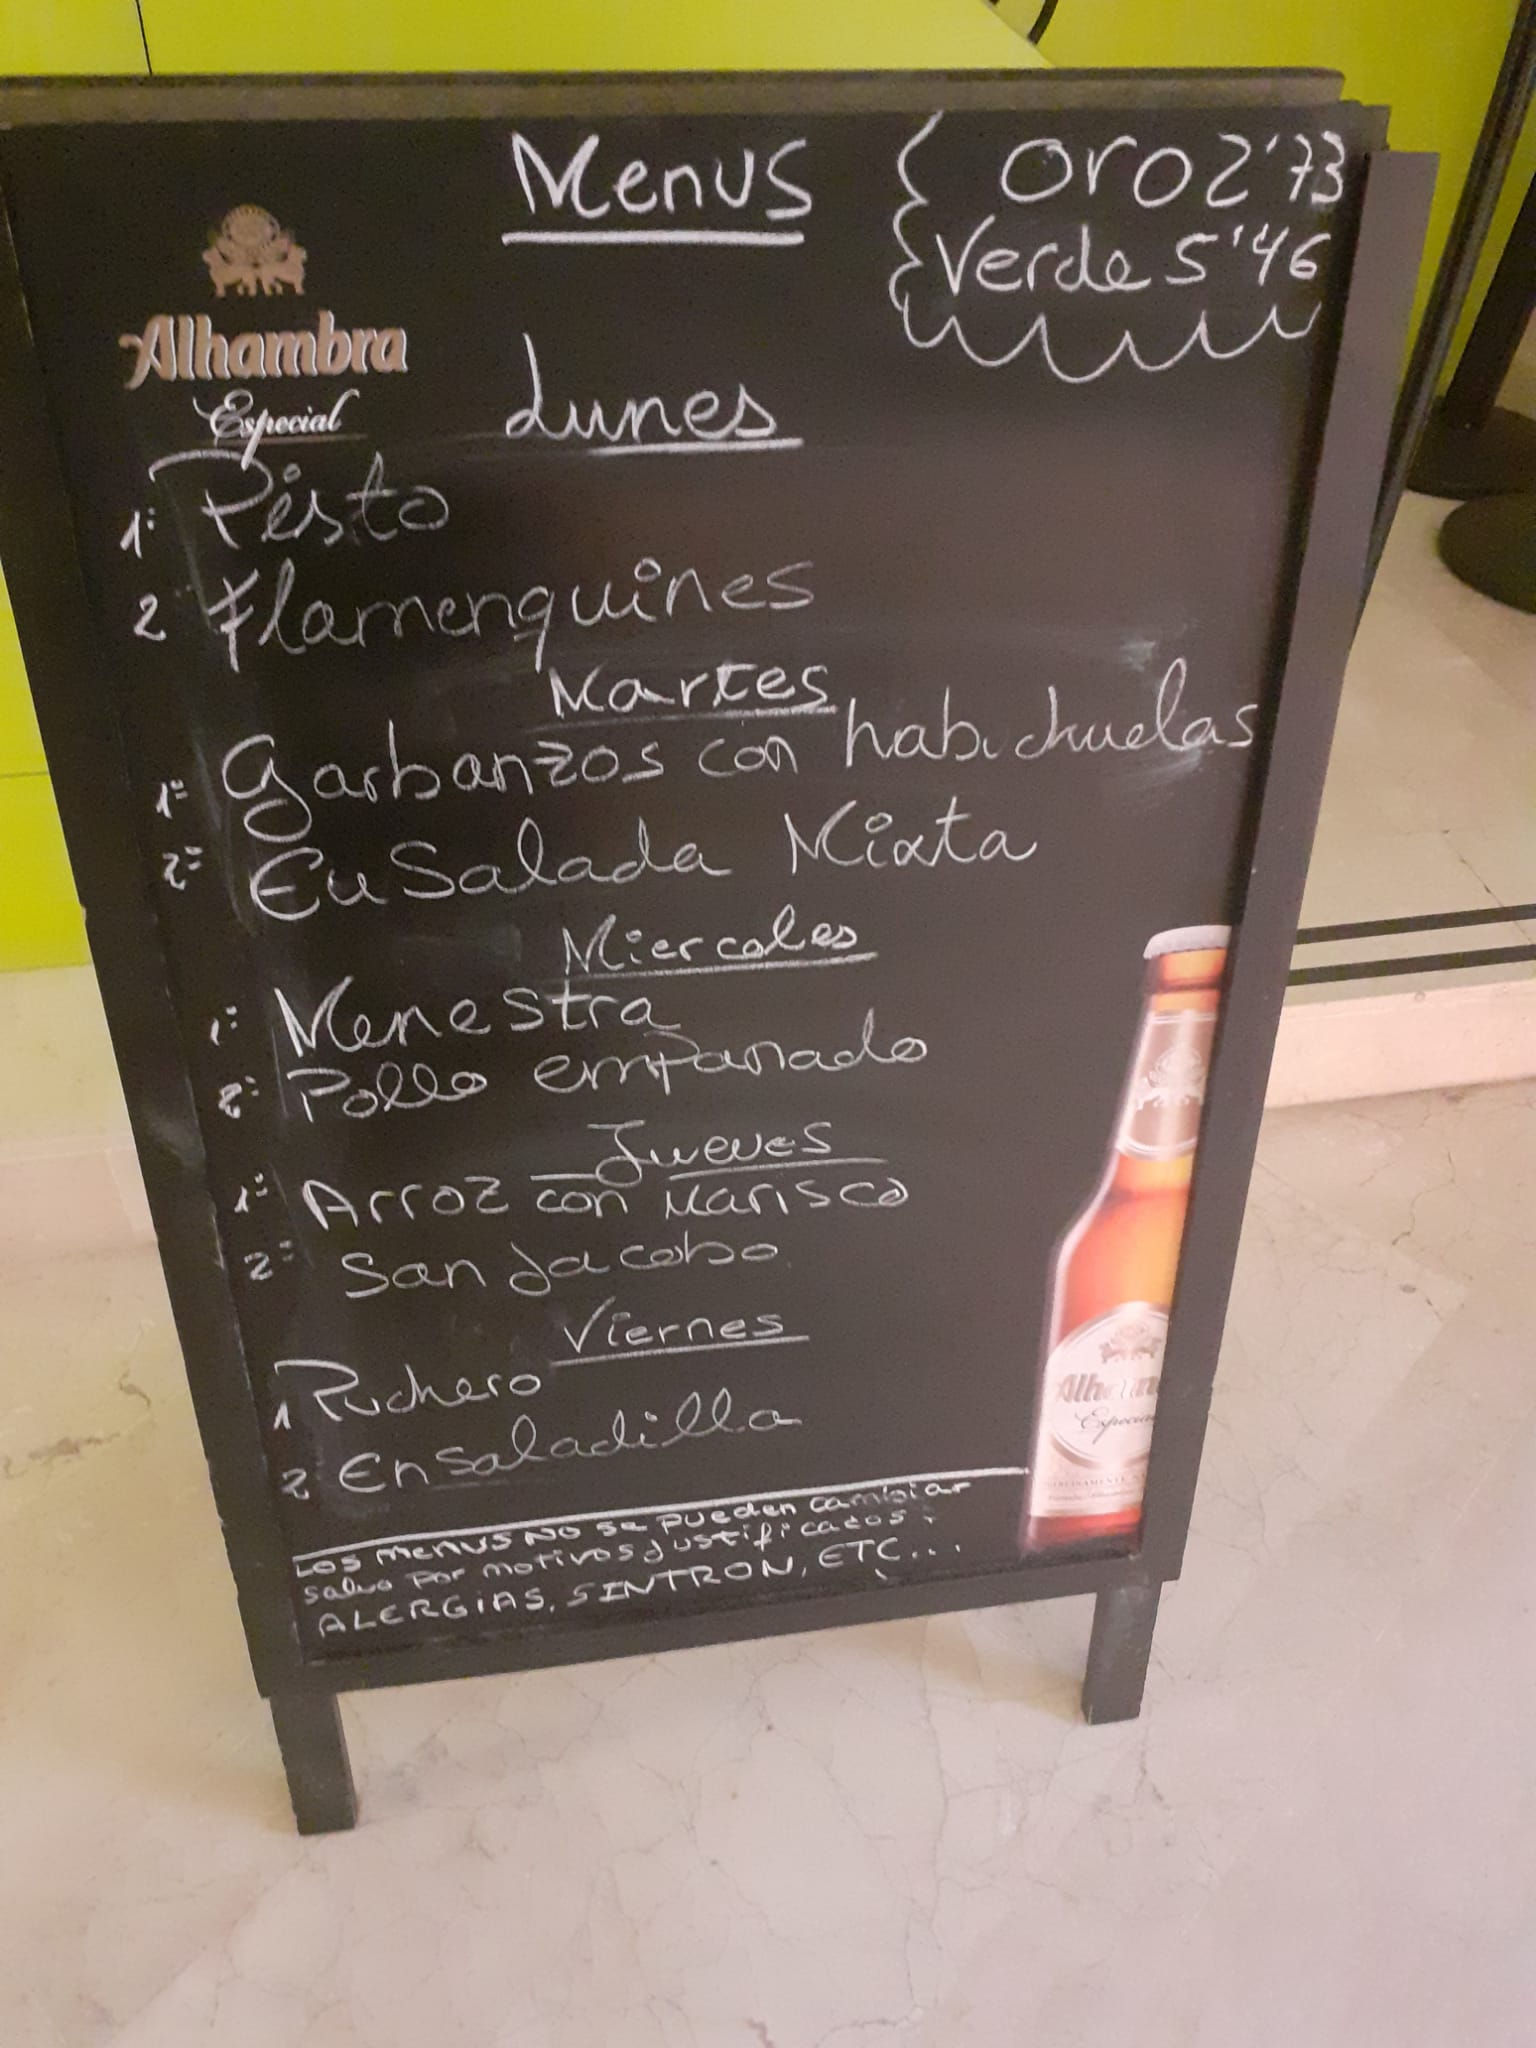 Menus
Oro 2'73
Verde 5'46
Alhambra
Especial
Lunes
1º Pisto
2 Flamenquines
Martes
1º Garbanzos con habichuelas
2º Ensalada Mixta
Miercoles
1º Menestra
2º Pollo empanado
Jueves
1º Arroz con Marisco
2º San Jacobo
Viernes
1 Puchero
2 Ensaladilla
Los menus NO se pueden cambiar
salvo por motivos justificados:
ALERGIAS, SINTRON, ETC...
Alhambra
Especial